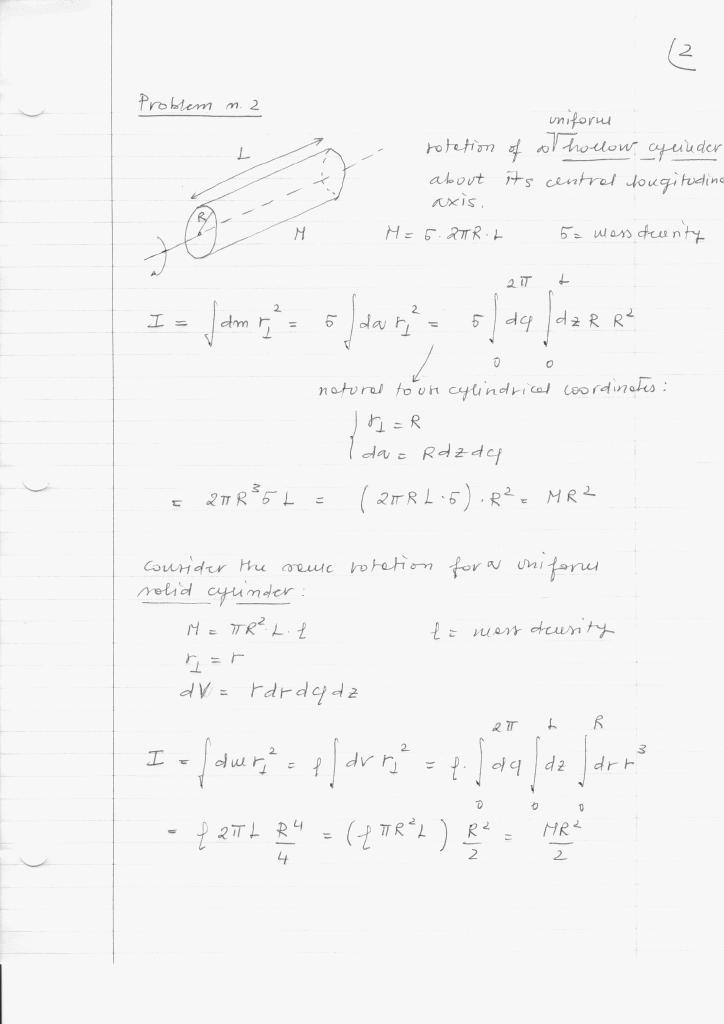 (2
Problem n. 2
uniform
rotation of a hollow cylinder
about its central longitudinal
axis.
L
R
M
M = σ · 2πR · L    σ = mass density
I = ∫ dm r⊥² = σ ∫ da r⊥² = σ ∫₀^2π dφ ∫₀^L dz R R²
natural to use cylindrical coordinates:
{ r⊥ = R
da = R dz dφ
= 2πR³σL = (2πRL·σ)·R² = MR²
Consider the same rotation for a uniform
solid cylinder:
M = πR²·L·ρ    ρ = mass density
r⊥ = r
dV = r dr dφ dz
I = ∫ dm r⊥² = ρ ∫ dV r⊥² = ρ · ∫₀^2π dφ ∫₀^L dz ∫₀^R dr r³
= ρ 2πL R⁴/4 = (ρπR²L) R²/2 = MR²/2